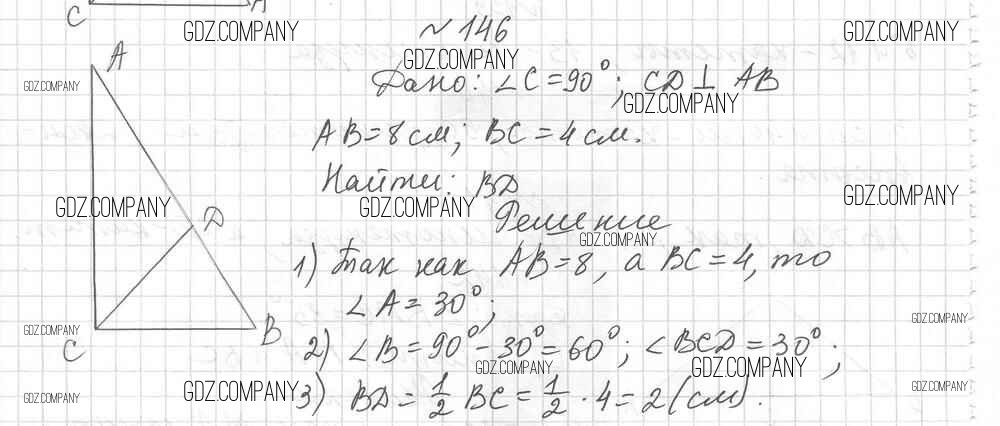 C A
GDZ.COMPANY GDZ.COMPANY
№ 146
GDZ.COMPANY
A
GDZ.COMPANY
Дано: ∠C = 90°; CD ⊥ AB
GDZ.COMPANY
AB = 8 см; BC = 4 см.
Найти: BD
GDZ.COMPANY GDZ.COMPANY GDZ.COMPANY
D
Решение
GDZ.COMPANY
1) Так как AB = 8, а BC = 4, то
∠A = 30°;
GDZ.COMPANY GDZ.COMPANY
C B
2) ∠B = 90° - 30° = 60°; ∠BCD = 30°;
GDZ.COMPANY GDZ.COMPANY
GDZ.COMPANY GDZ.COMPANY GDZ.COMPANY
3) BD = 1/2 BC = 1/2 · 4 = 2 (см).